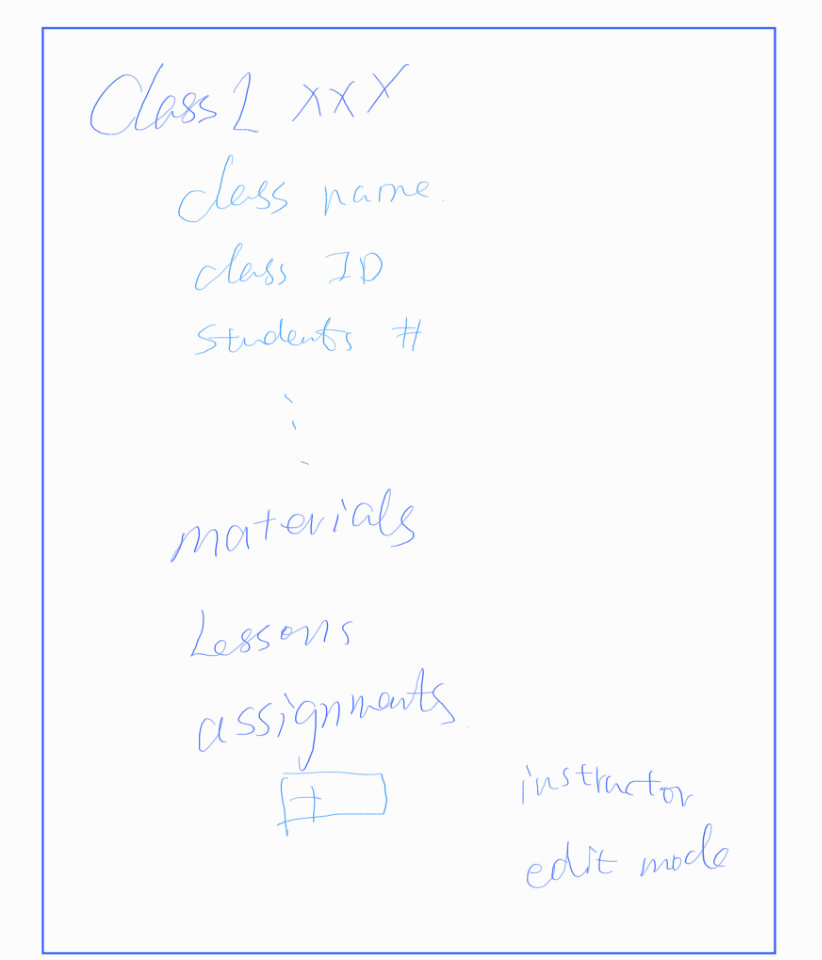 Class 1 XXX
class name.
class ID
Students #
⋮
materials
Lessons
assignments
+
instructor
edit mode